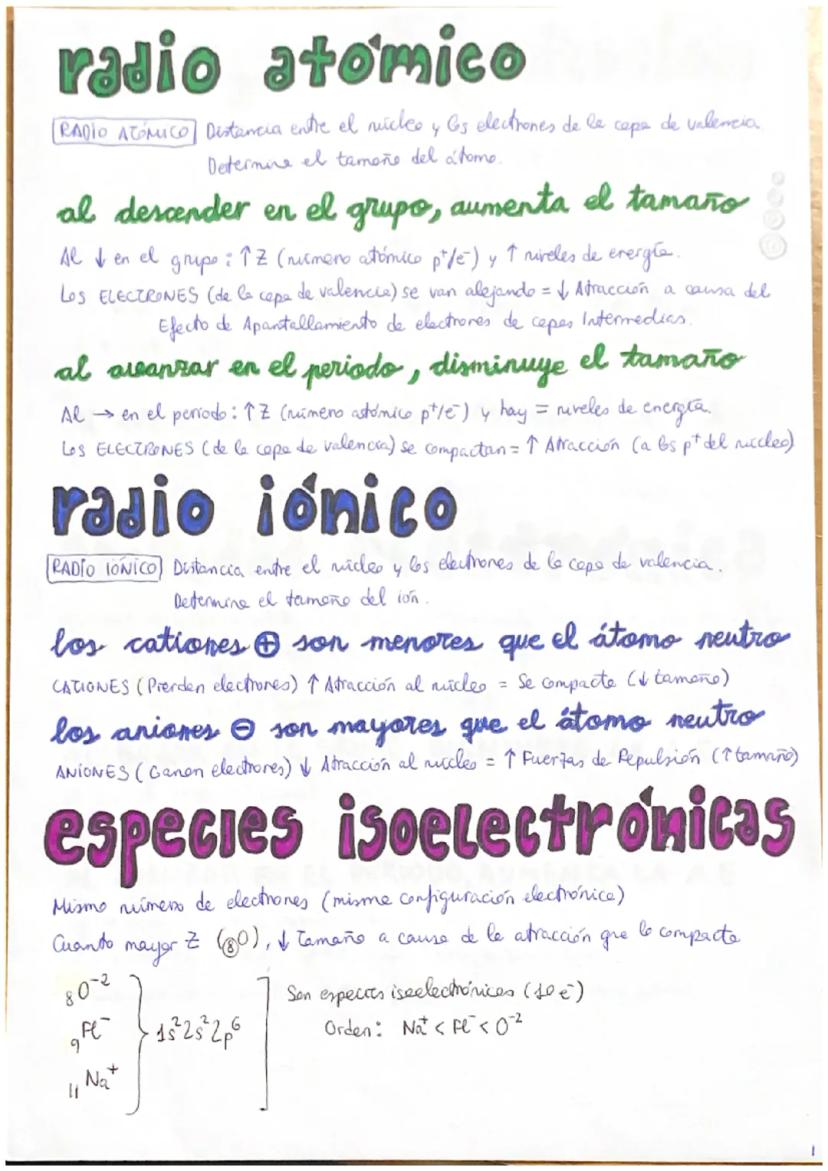 radio atómico
RADIO ATÓMICO Distancia entre el núcleo y los electrones de la capa de valencia.
Determina el tamaño del átomo.
al descender en el grupo, aumenta el tamaño
Al ↓ en el grupo: ↑ Z (número atómico p⁺/e⁻) y ↑ niveles de energía.
Los ELECTRONES (de la capa de valencia) se van alejando = ↓ Atracción a causa del
Efecto de Apantallamiento de electrones de capas Intermedias.
al avanzar en el periodo, disminuye el tamaño
Al → en el periodo: ↑ Z (número atómico p⁺/e⁻) y hay = niveles de energía.
Los ELECTRONES (de la capa de valencia) se compactan = ↑ Atracción (a los p⁺ del nucleo)
radio iónico
RADIO IÓNICO Distancia entre el núcleo y los electrones de la capa de valencia.
Determina el tamaño del ión.
los cationes ⊕ son menores que el átomo neutro
CATIONES (Pierden electrones) ↑ Atracción al núcleo = Se compacta (↓ tamaño)
los aniones ⊖ son mayores que el átomo neutro
ANIONES (Ganan electrones) ↓ Atracción al nucleo = ↑ Fuerzas de Repulsión (↑ tamaño)
especies isoelectrónicas
Mismo número de electrones (misma configuración electrónica)
Cuanto mayor Z (₈O), ↓ Tamaño a causa de la atracción que lo compacta
₈O⁻²
₉Fl⁻
₁₁Na⁺
1s² 2s² 2p⁶
Son especies isoelectrónicas (10 e⁻)
Orden: Na⁺ < Fl⁻ < O⁻²
1